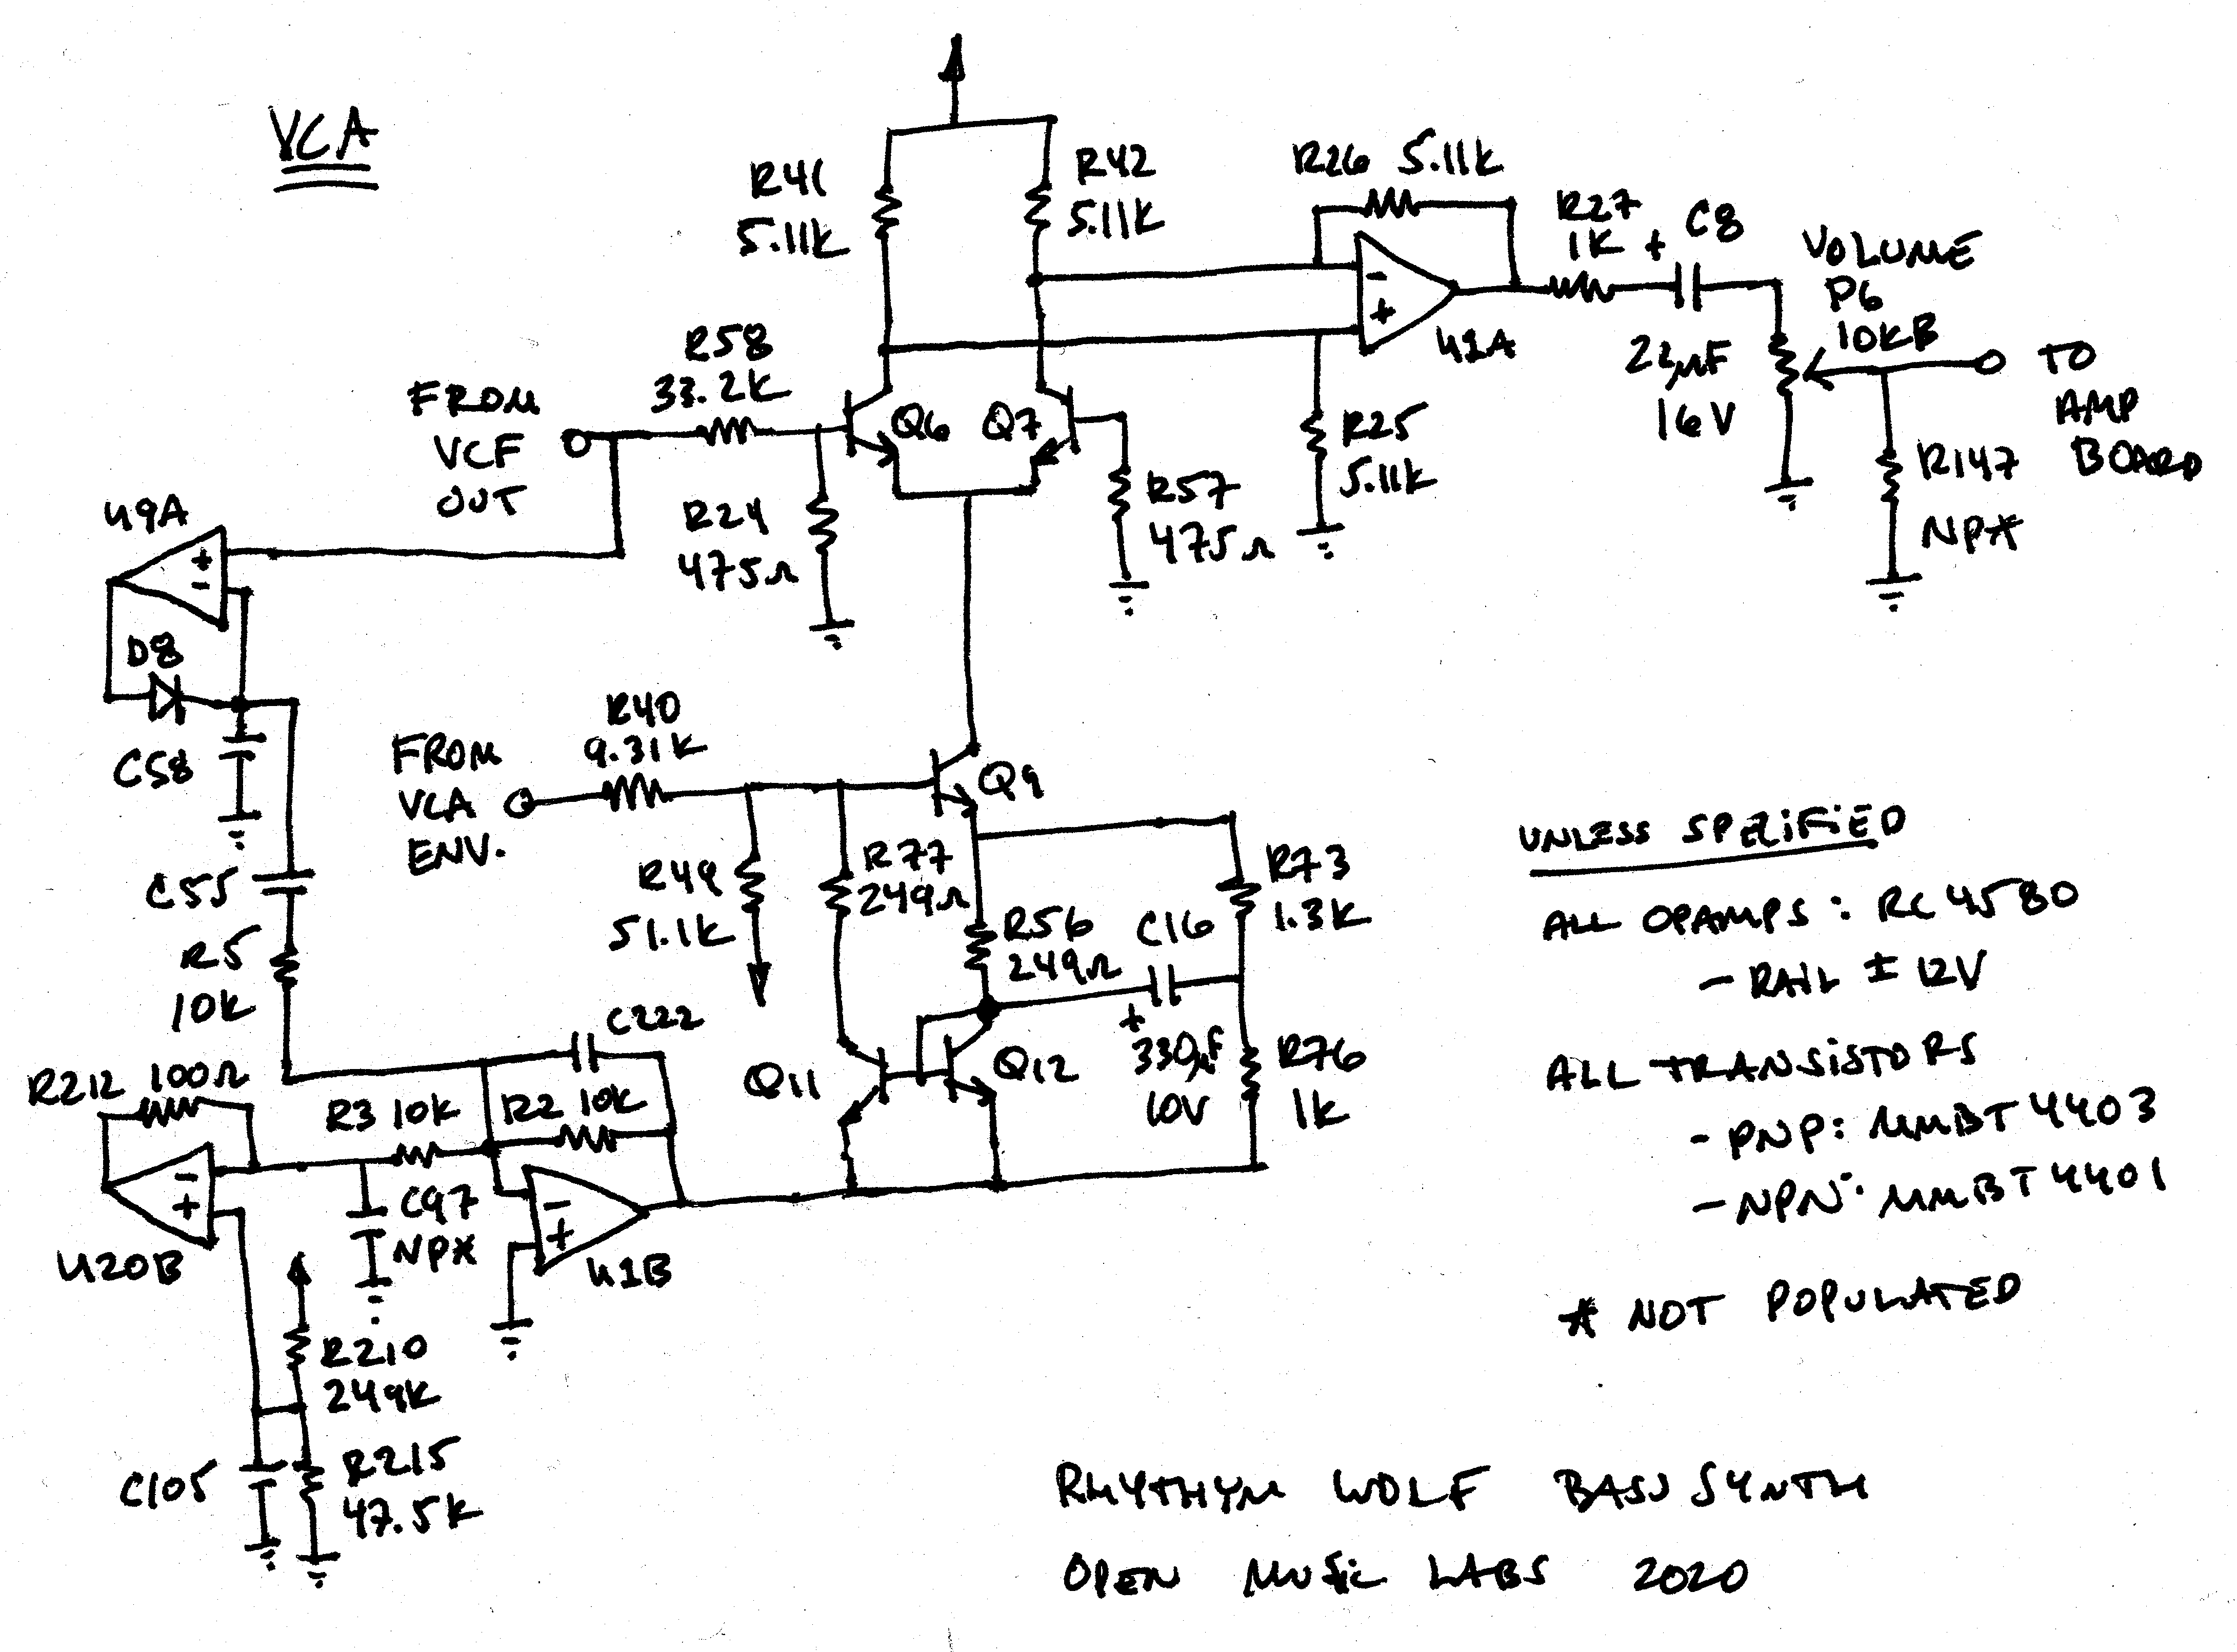 VCA
R41
5.11K
R42
5.11K
R26 5.11K
R27
1K
+
C8
22µF
16V
VOLUME
P6
10KB
TO
AMP
BOARD
R147
NP*
-
+
U1A
R25
5.11K
FROM
VCF
OUT
R58
33.2K
Q6
Q7
R24
475Ω
R57
475Ω
U9A
+
-
D8
C58
C55
R5
10K
FROM
VCA
ENV.
R40
9.31K
Q9
R49
51.1K
R77
249Ω
R56
249Ω
C16
+
330µF
10V
R73
1.3K
R76
1K
Q11
Q12
C222
R212 100Ω
R3 10K
R2 10K
-
+
U20B
C97
NP*
-
+
U1B
R210
249K
C105
R215
47.5K
UNLESS SPEZIFIED
ALL OPAMPS: RC4580
- RAIL ± 12V
ALL TRANSISTORS
- PNP: MMBT4403
- NPN: MMBT4401
* NOT POPULATED
RHYTHYM WOLF BASS SYNTH
OPEN MUSIC LABS 2020